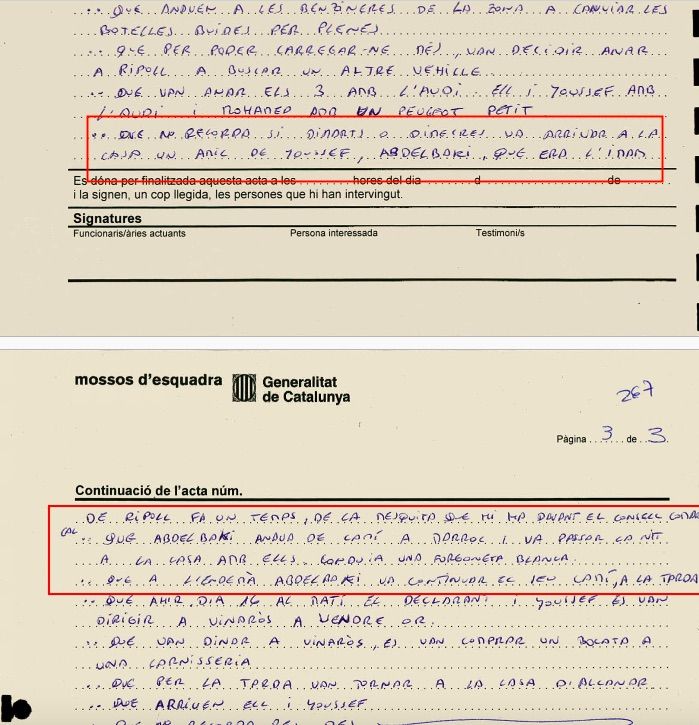 .. QUE ANAVEN A LES BENZINERES DE LA ZONA A CANVIAR LES
BOTELLES BUIDES PER PLENES
.. QUE PER PODER CARREGAR-NE MÉS, VAN DECIDIR ANAR
A RIPOLL A BUSCAR UN ALTRE VEHICLE
.. QUE VAN ANAR ELS 3 AMB L'AUDI. ELL I YOUSSEF AMB
L'AUDI I MOHAMED AMB UN PEUGEOT PETIT
.. QUE NO RECORDA SI DIMARTS O DIMECRES VA ARRIVAR A LA
CASA UN AMIC DE YOUSSEF, ABDELBAKI, QUE ERA L'IMAM
Es dóna per finalitzada aquesta acta a les hores del dia d de
i la signen, un cop llegida, les persones que hi han intervingut.
Signatures
Funcionaris/àries actuants Persona interessada Testimoni/s
mossos d'esquadra Generalitat
de Catalunya
267
Pàgina 3 de 3
Continuació de l'acta núm.
DE RIPOLL FA UN TEMPS, DE LA MESQUITA QUE HI HA DAVANT EL CONSELL COMAR
CAL
.. QUE ABDELBAKI ANAVA DE CAMÍ A MARROC I VA PASSAR LA NIT
A LA CASA AMB ELLS. CONDUIA UNA FURGONETA BLANCA
.. QUE A L'ENDEMÀ ABDELBAKI VA CONTINUAR EL SEU CAMÍ, A LA TARDA
.. QUE AHIR, DIA 16 AL MATÍ EL DECLARANT I YOUSSEF ES VAN
DIRIGIR A VINARÒS A VENDRE OR.
.. QUE VAN DINAR A VINARÒS, ES VAN COMPRAR UN BOCATA A
UNA CARNISSERIA
.. QUE PER LA TARDA VAN TORNAR A LA CASA D'ALCANAR
.. QUE ARRIVEN ELL I YOUSSEF